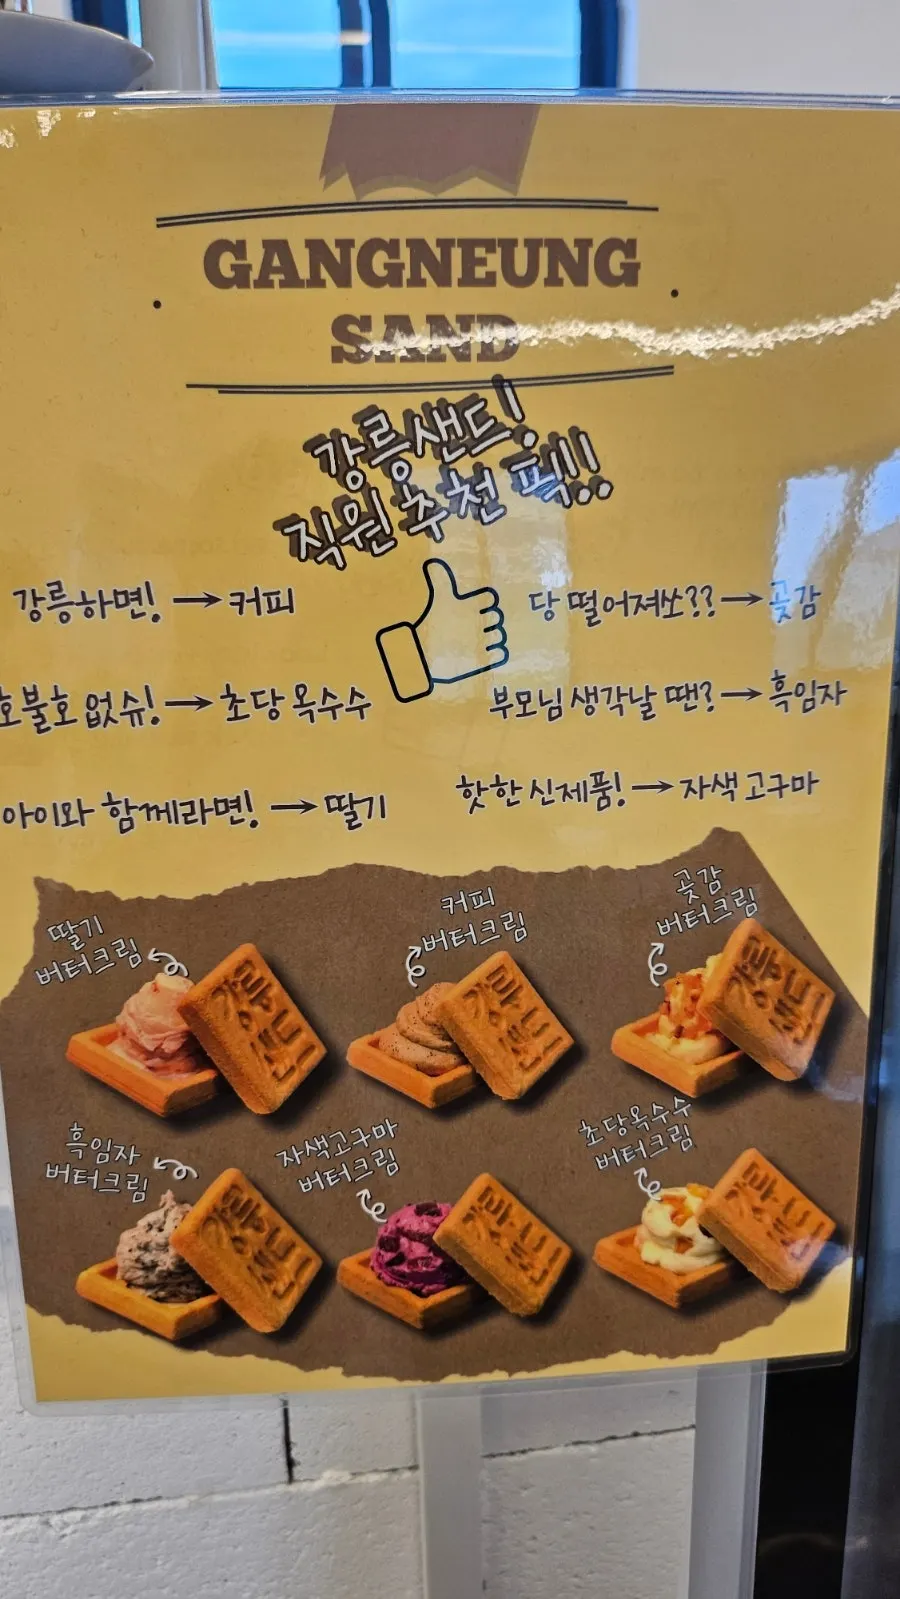 GANGNEUNG
SAND
강릉샌드!
직원 추천 픽!!
강릉하면! → 커피
당 떨어져쓰?? → 곶감
호불호 없슈! → 초당 옥수수
부모님 생각날 땐? → 흑임자
아이와 함께라면! → 딸기
핫한 신제품! → 자색 고구마
딸기
버터크림
커피
버터크림
곶감
버터크림
흑임자
버터크림
자색고구마
버터크림
초당옥수수
버터크림